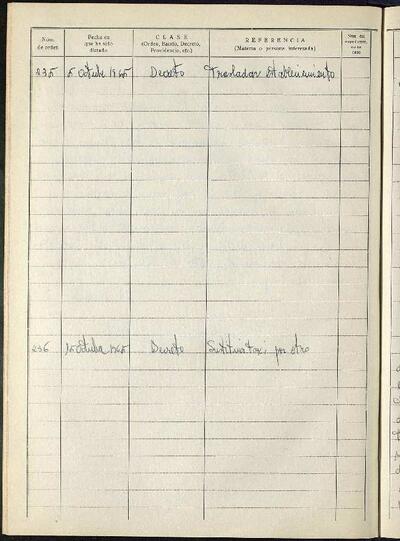 Núm. de orden
Fecha en que ha sido dictada
CLASE (Orden, Bando, Decreto, Providencia, etc.)
REFERENCIA (Materia o persona interesada)
235 5 octubre 1965 Decreto Trasladar establecimiento
236 15 octubre 1965 Decreto Sustituir taxi por otro